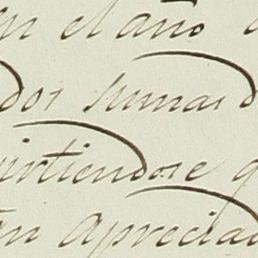 en el año
dos sumas d
irtiendose q
en apreciad